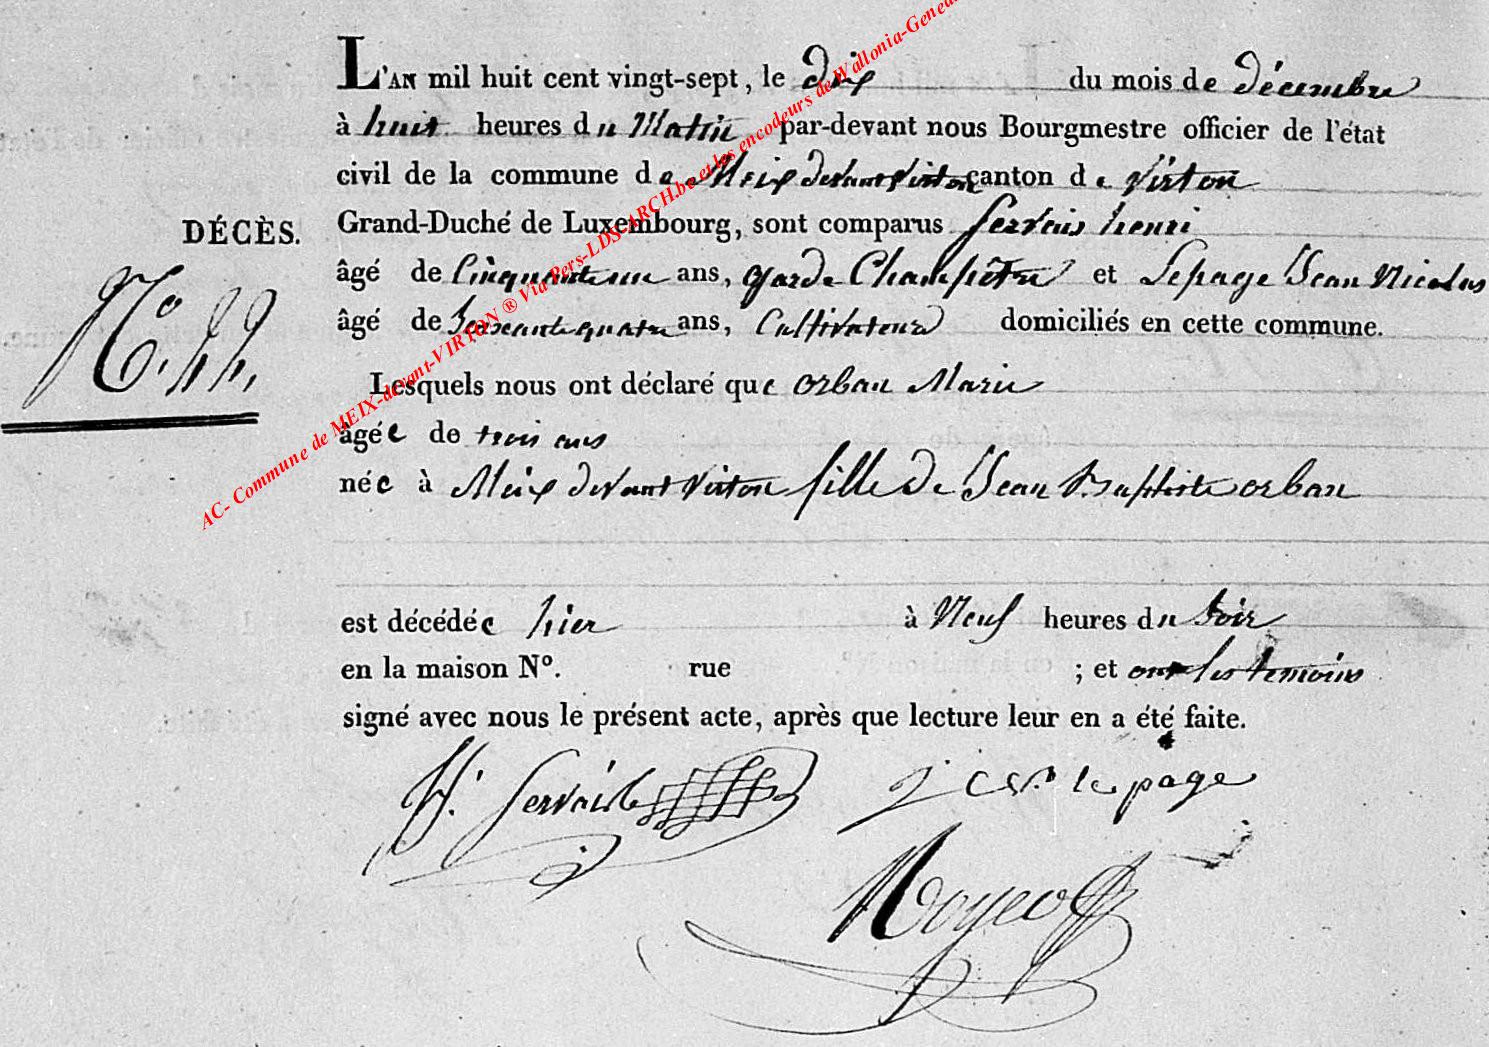 L'AN mil huit cent vingt-sept, le dix du mois de décembre
à huit heures du Matin par-devant nous Bourgmestre officier de l'état
civil de la commune de Meix devant Virton canton de Virton
DÉCÈS.
Grand-Duché de Luxembourg, sont comparus Servais henri
âgé de Cinquante un ans, garde Champêtre et Lepage Jean Nicolas
âgé de Soixante quatre ans, Cultivateur domiciliés en cette commune.
Lesquels nous ont déclaré que orban Marie
âgée de trois ans
née à Meix devant Virton fille de Jean Baptiste orban
est décédée hier à Neuf heures du Soir
en la maison No. rue ; et ont les temoins
signé avec nous le présent acte, après que lecture leur en a été faite.
H. Servais
le page
AC- Commune de MEIX-devant-VIRTON ® Via Pers-LDS-ARCH.be et les encodeurs de Wallonia-Genea